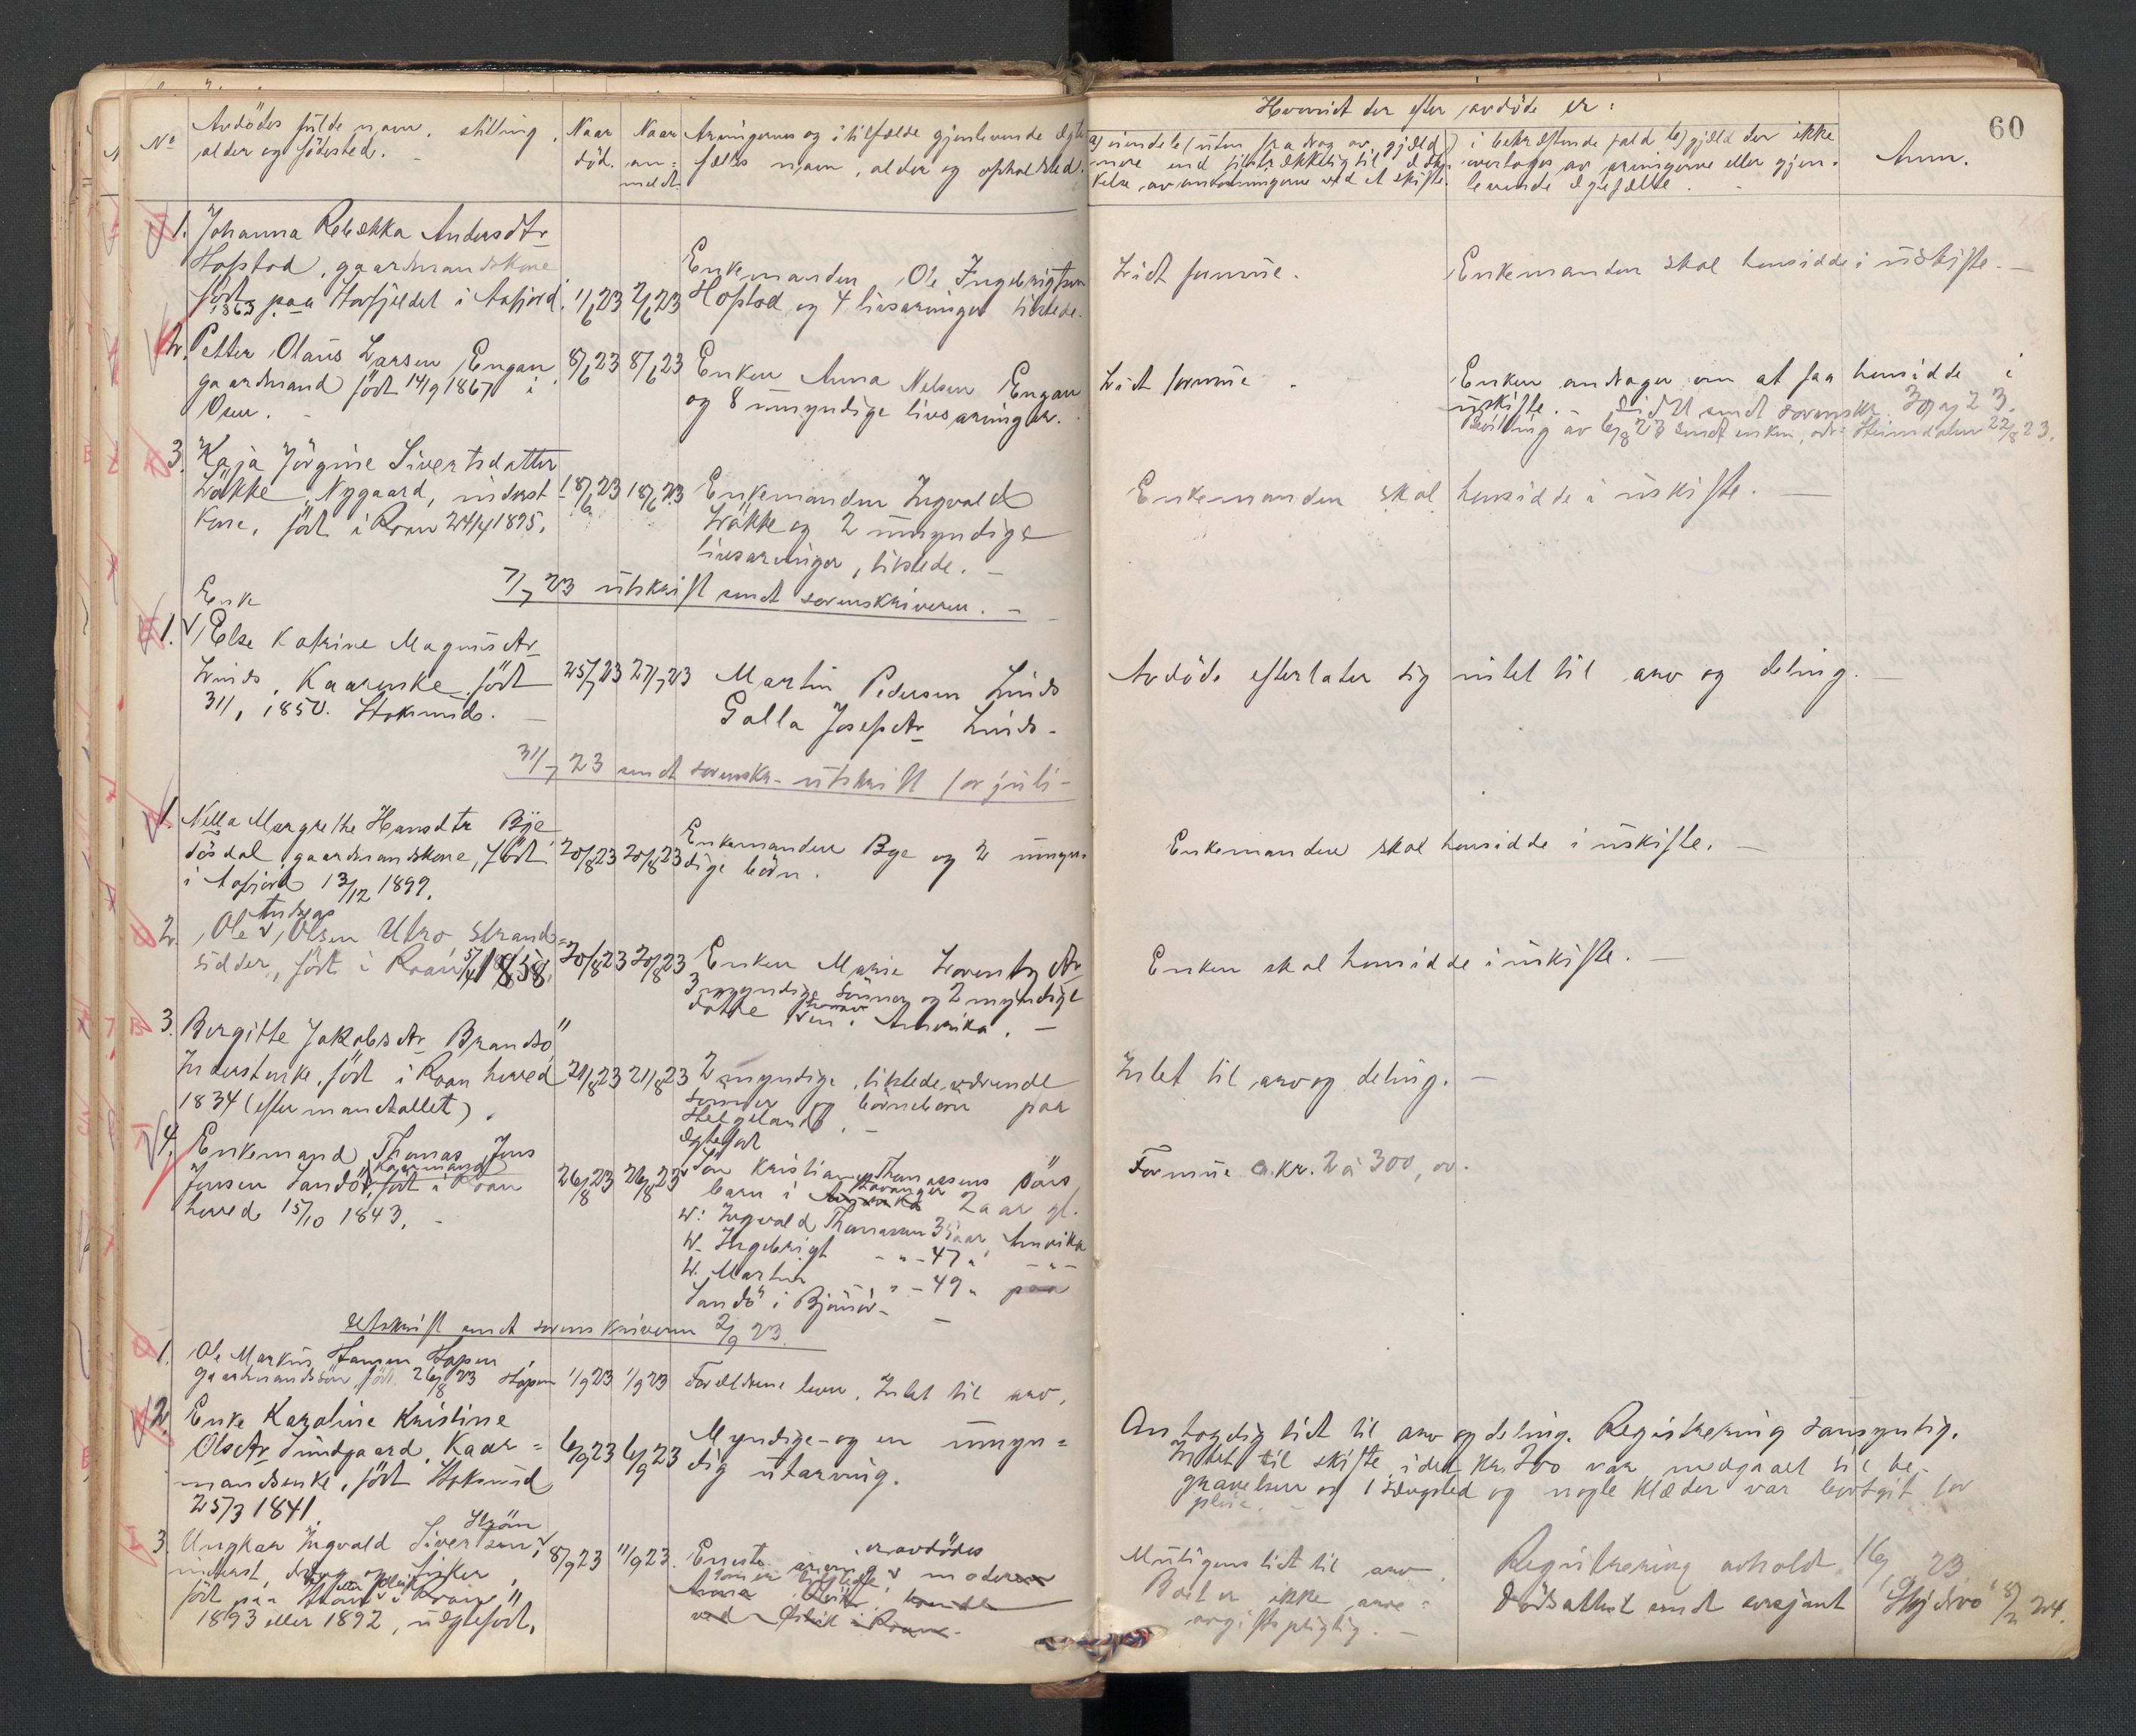 60
No
Avdödes fulde navn, stilling,
alder og födested.
Naar
död.
Naar
an=
meldt
Arvingernes og i tilfælde gjenlevende egte
fælles navn, alder og opholdsted.
Hvorvidt der efter avdöde er:
a) eiendele (uten fradrag av gjæld)
mere end tilstrækkelig til dæk-
kelse av omkostningerne ved et skifte.
i bekræftende fald b) gjæld der ikke
overtages av arvingerne eller gjen-
levende egtefælle.
Anm.
1. Johanna Rebekka Andersdtr
Hopstad, gaardmandskone
födt 1863 paa Storfjeldet i Aafjord.
1/6 23
2/6 23
Enkemanden Ole Ingebrigtsen
Hopstad og 4 livsarvinger tilstede.
Lidt formue.
Enkemanden skal hensidde i uskifte. -
2. Petter Olaus Larsen Engan
gaardmand födt 14/9 1867 i
Osen. -
8/6 23
8/6 23
Enken Anna Nelsen Engan
og 8 umyndige livsarvinger.
Lidt formue.
Enken andrager om at faa hensidde i
uskifte. - sendt sorenskr. 23.
Bevilling av 6/8 23 sendt enken, 22/8 23.
3. Kaja Jörgine Sivertsdatter
Løkke, Nygaard, inderst
kone, födt i Roan 24/4 1895.
18/6 23
18/6 23
Enkemanden Ingvald
Løkke og 2 umyndige
livsarvinger, tilstede. -
Enkemanden skal hensidde i uskifte. -
7/7 23 utskrift sendt sorenskriveren. -
Enk
1. Else Katrine Magnusdtr
Linds, Kaarenke födt
3/1 1850. Stoksund. -
25/7 23
27/7 23
Martin Pedersen Linds
Galla Josefdtr Linds -
Avdöde efterlater sig intet til arv og deling. -
31/7 23 sendt sorenskr. utskrift for juli -
1. Nella Margrethe Hansdtr Bye
dösdal, gaardmandskone, födt
i Aafjord 13/12 1899.
20/8 23
20/8 23
Enkemanden Bye og 2 umyn-
dige börn.
Enkemanden skal hensidde i uskifte. -
2. Ole Andreas Olsen Utro Strand=
sidder, födt i Roan 5/4 1858.
20/8 23
20/8 23
Enken Marie Lorentzdtr
3 myndige sönner og 2 myndige
dötre hvorav i Amerika. -
Enken skal hensidde i uskifte. -
3. Bergitte Jakobsdtr Brandsö
Inderstenke, födt i Roan herred
1834 (efter mandtallet).
21/8 23
21/8 23
2 myndige, tilstedeværende
sönner og börnebörn paa
Helgeland. -
Intet til arv og deling. -
4. Enkemand Thomas Jens
Jensen Sandö, Kaarmand födt i Roan
herred 15/10 1843. -
26/8 23
26/8 23
Egtefödt
Sön Kristian Thomassens
barn i Amerika Stavanger 2 aar gl.
" Ingvald Thomassen 35 aar, Amerika
" Ingebrigt - " - 47 " - " -
" Martin - " - 49 " paa
Sandö i Bjönör -
Formue a. kr. 2 à 300,00.
Utskrift sendt sorenskriveren 2/9 23.
1. Ole Markus Hansen Hopen,
gaardmandssön, födt 26/8 23 Hopen
1/9 23
1/9 23
Forældrene lever. Intet til arv.
2. Enke Karoline Kristine
Olsdtr Sundgaard, Kaar=
mandsenke, födt Stoksund
25/3 1841.
6/9 23
6/9 23
Myndige - og en umyn=
dig utarving.
Antagelig lidt til arv og deling. Registrering sansynlig.
Intet til skifte idet kr. 200 var medgaaet til be-
gravelsen og 1 sengsted og nogle klæder var bortgit for
pleie.
3. Ungkar Ingvald Sivertsen Ström,
inderst, dreng og fisker,
födt paa i Roan
1893 eller 1892, uegtefödt.
8/9 23
11/9 23.
Eneste arving er avdödes
moderen
Anna
ved i Roan.
Muligens lidt til arv.
Boet er ikke arve=
avgiftspligtig. -
Registrering avholdt 16/9 23
Dödsattest sendt sersjant 8/2 24.